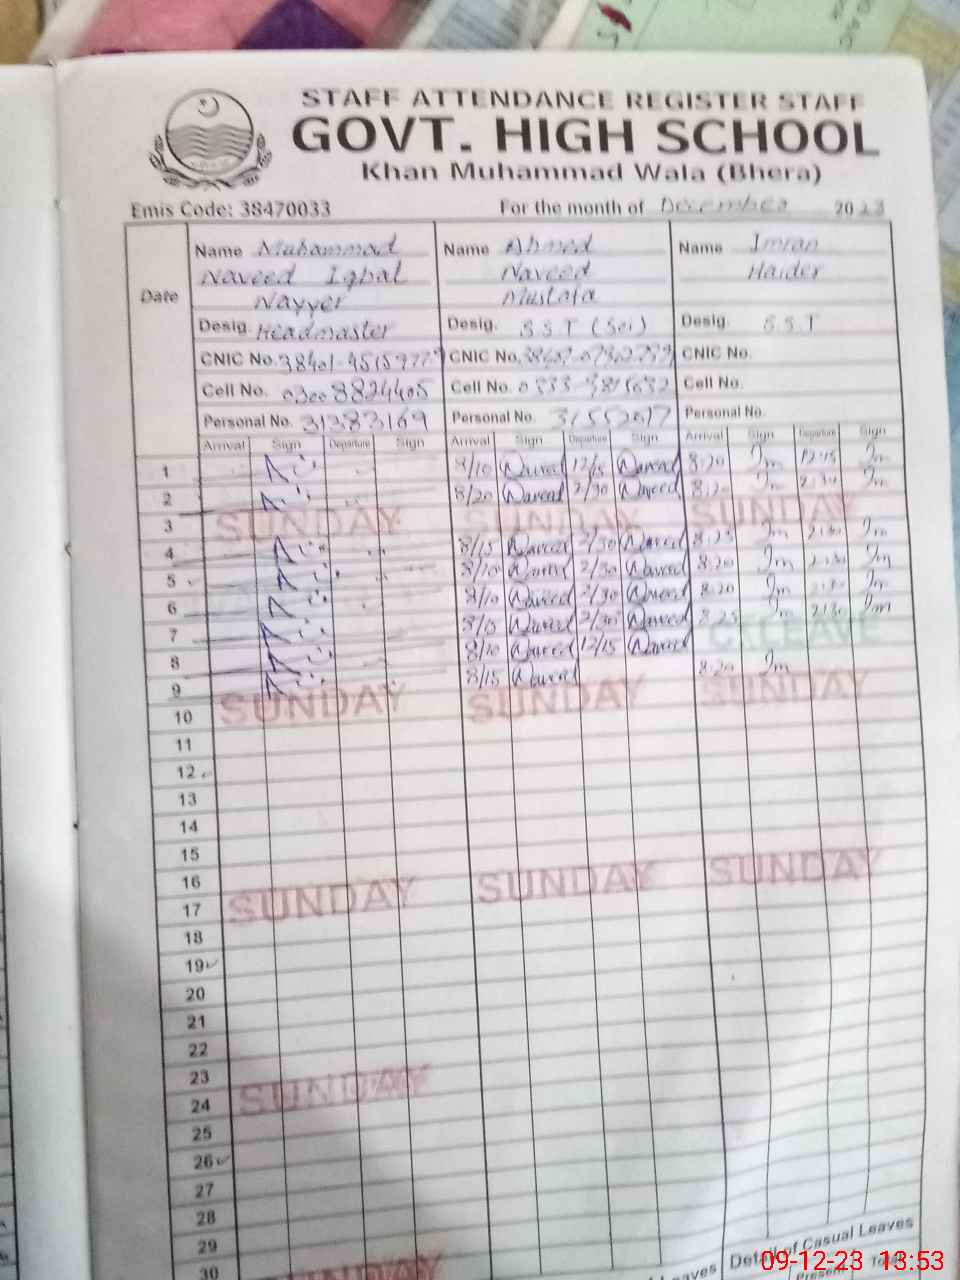 STAFF ATTENDANCE REGISTER STAFF
GOVT. HIGH SCHOOL
Khan Muhammad Wala (Bhera)
Emis Code: 38470033 For the month of December 2023
Date
Name Muhammad Naveed Iqbal Nayyer
Desig. Headmaster
CNIC No.
Cell No. 0300 8824405
Personal No. 31383169
Arrival Sign Departure Sign
Name Ahmed Naveed Mustafa
Desig. S.S.T (Sci)
CNIC No.
Cell No.
Personal No.
Arrival Sign Departure Sign
Name Imran Haider
Desig. S.S.T
CNIC No.
Cell No.
Personal No.
Arrival Sign Departure Sign
1 8/10 Naveed 12/15 Naveed 8:20 Im 12:15 Im
2 8/20 Naveed 2/30 Naveed 8:20 Im 2:30 Im
3 SUNDAY SUNDAY SUNDAY
4 8/15 Naveed 2/30 Naveed 8:25 Im 2:30 Im
5 8/10 Naveed 2/30 Naveed 8:20 Im 2:30 Im
6 8/10 Naveed 2/30 Naveed 8:20 Im 2:30 Im
7 Naveed 2/30 Naveed 8:25 Im 2:30 Im
8 8/10 Naveed 12/15 Naveed LEAVE
9 8/15 Naveed 8:20 Im
10 SUNDAY SUNDAY SUNDAY
11
12
13
14
15
16
17 SUNDAY SUNDAY SUNDAY
18
19
20
21
22
23
24 SUNDAY
25
26
27
28
29
30
SUNDAY
Leaves
Detail of Casual Leaves
Present Total
09-12-23 13:53